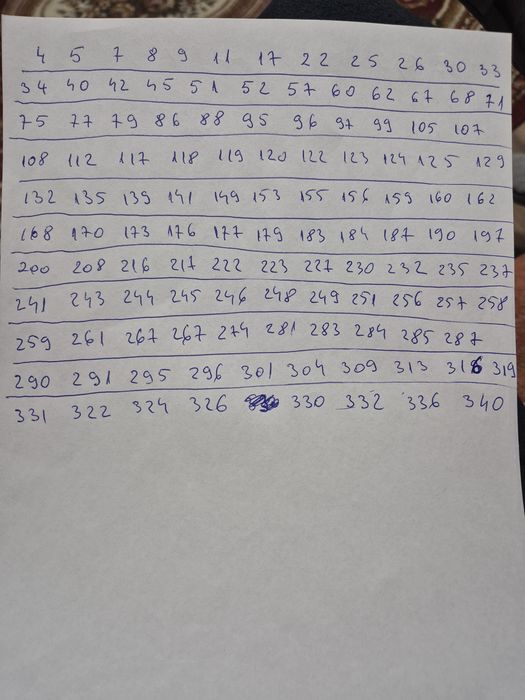 4 5 7 8 9 11 17 22 25 26 30 33
34 40 42 45 51 52 57 60 62 67 68 71
75 77 79 86 88 95 96 97 99 105 107
108 112 117 118 119 120 122 123 124 125 129
132 135 139 141 149 153 155 156 159 160 162
168 170 173 176 177 179 183 184 187 190 197
200 208 216 217 222 223 227 230 232 235 237
241 243 244 245 246 248 249 251 256 257 258
259 261 267 267 274 281 283 284 285 287
290 291 295 296 301 304 309 313 316 319
331 322 324 326 330 332 336 340